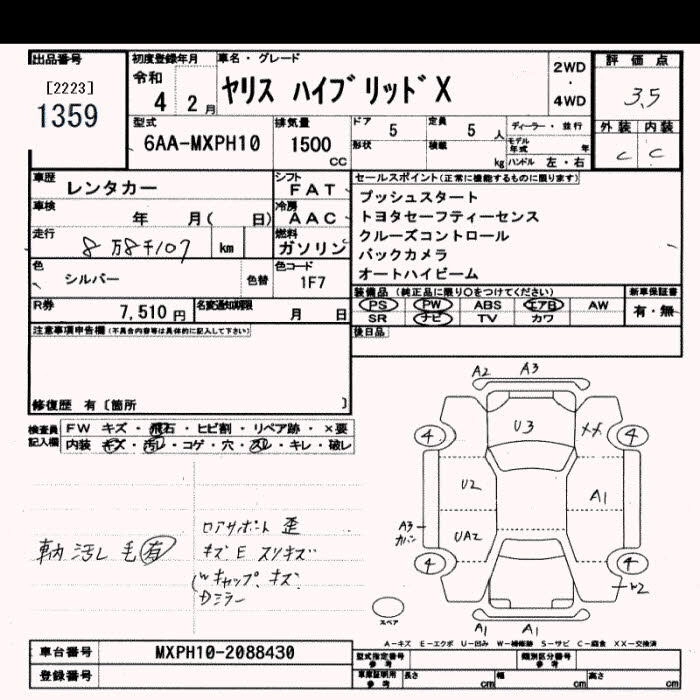 出品番号
[2223]
1359
初度登録年月
令和
4 2月
車名・グレード
ヤリス ハイブリッド X
2WD
・
4WD
評価点
3.5
型式
6AA-MXPH10
排気量
1500
CC
ドア 5
定員 5 人
形状
積載 kg
ディーラー・並行
モデル年式 年
ハンドル 左・右
外装 内装
C C
車歴 レンタカー
シフト FAT
車検 年 月( 日)
冷房 AAC
走行 8万8千107 km
燃料 ガソリン
色 シルバー 色替
色コード 1F7
R券 7,510円
名変通知期限 月 日
セールスポイント(正常に機能するものに限ります)
プッシュスタート
トヨタセーフティーセンス
クルーズコントロール
バックカメラ
オートハイビーム
装備品(純正品に限り○をつけてください)
新車保証書
PS PW ABS エアB AW
SR ナビ TV カワ
有・無
後日品
注意事項申告欄(不具合内容等は具体的に記入して下さい)
修復歴 有〔箇所 〕
検査員記入欄
FW キズ・飛石・ヒビ割・リペア跡・×要
内装 キズ・汚レ・コゲ・穴・スレ・キレ・破レ
車内汚し 毛有
ロアサポート 歪
キズE スリキズ
Wキャップ、キズ
Dミラー
A2 A3
U3
XX
4 4
U2
A1
UA2
A3
カバン
4 4
W2
スペア
A1 A1
A-キズ E-エクボ U-凹み W-補修跡 S-サビ C-腐食 XX-交換済
車台番号 MXPH10-2088430
登録番号
型式指定番号 参考
類別区分番号 参考
車庫証明用 参考
長さ cm
幅 cm
高さ cm